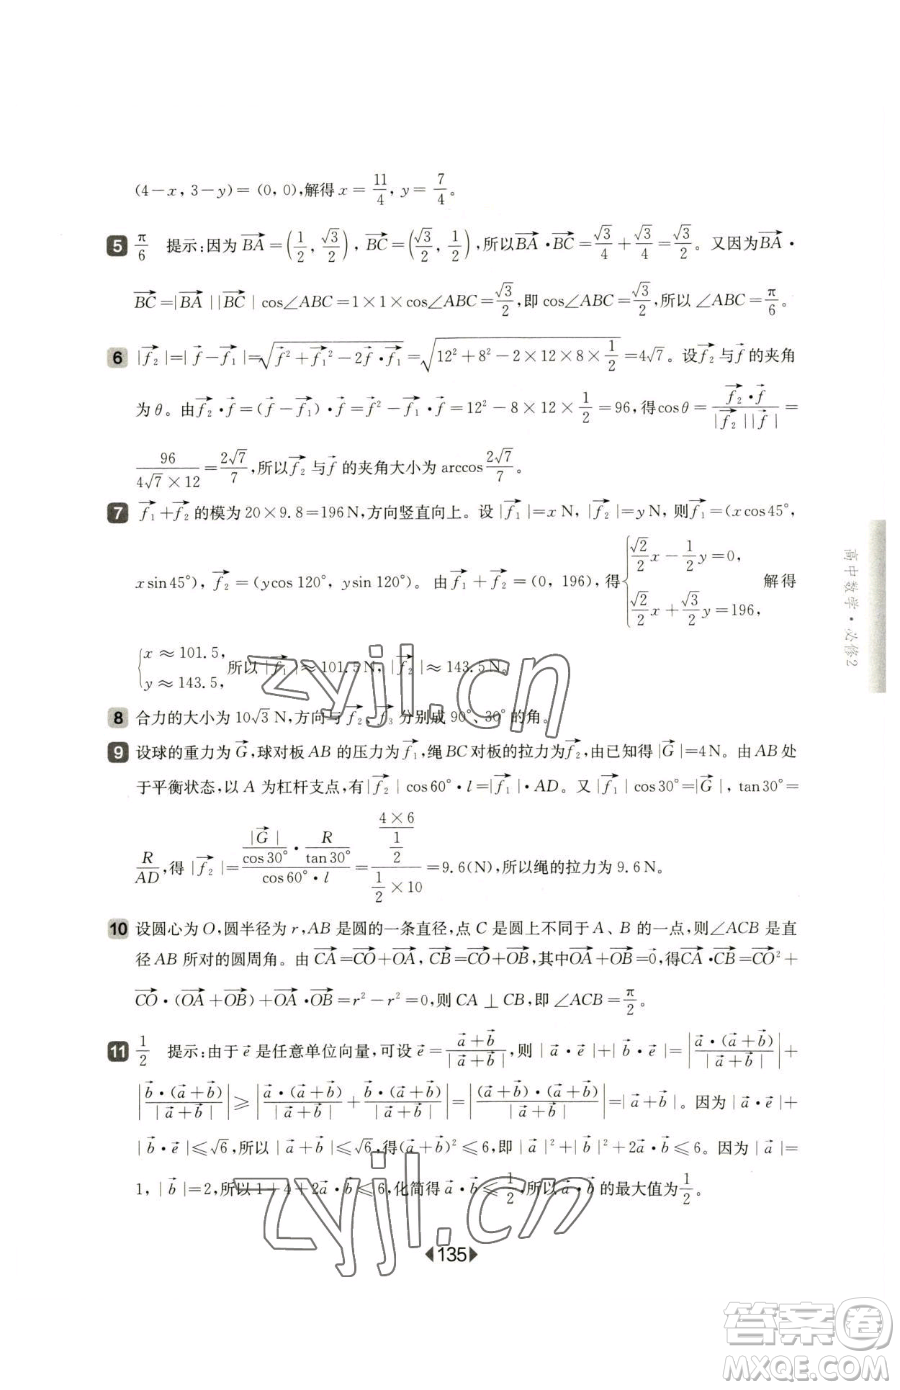 (4-x, 3-y)=(0, 0),解得 x=11/4, y=7/4。
5 π/6 提示:因为BA→=(1/2, √3/2), BC→=(√3/2, 1/2),所以BA→·BC→=√3/4+√3/4=√3/2。又因为BA→·
BC→=|BA→||BC→|cos∠ABC=1×1×cos∠ABC=√3/2,即 cos∠ABC=√3/2,所以 ∠ABC=π/6。
6 |f₂→|=|f→-f₁→|=√(f→²+f₁→²-2f→·f₁→)=√(12²+8²-2×12×8×1/2)=4√7。设f₂→与f→的夹角
为θ。由f₂→·f→=(f→-f₁→)·f→=f→²-f₁→·f→=12²-8×12×1/2=96,得cosθ=(f₂→·f→)/(|f₂→||f→|)=
96/(4√7×12)=2√7/7,所以f₂→与f→的夹角大小为 arccos 2√7/7。
7 f₁→+f₂→的模为20×9.8=196N,方向竖直向上。设|f₁→|=x N, |f₂→|=y N, 则f₁→=(x cos45°,
x sin45°), f₂→=(y cos 120°, y sin 120°)。由f₁→+f₂→=(0, 196),得{√2/2 x-1/2 y=0, √2/2 x+√3/2 y=196, 解得
{x≈101.5, y≈143.5,所以|f₁→|≈101.5 N, |f₂→|≈143.5 N。
8 合力的大小为10√3 N,方向与f₂→、f₃→分别成 90°、30°的角。
9 设球的重力为G→,球对板 AB 的压力为f₁→,绳BC对板的拉力为f₂→,由已知得|G→|=4N。由AB处
于平衡状态,以 A 为杠杆支点,有|f₂→|cos60°·l=|f₁→|·AD。又|f₁→|cos30°=|G→|, tan30°=
R/AD,得|f₂→|=(|G→|/cos30°·R/tan30°)/(cos60°·l)=(4×6/(1/2))/(1/2×10)=9.6(N),所以绳的拉力为 9.6N。
10 设圆心为O,圆半径为r,AB是圆的一条直径,点 C 是圆上不同于 A、B 的一点,则∠ACB 是直
径AB 所对的圆周角。由 CA→=CO→+OA→, CB→=CO→+OB→,其中OA→+OB→=0→,得CA→·CB→=CO→²+
CO→·(OA→+OB→)+OA→·OB→=r²-r²=0,则 CA⊥CB,即 ∠ACB=π/2。
11 1/2 提示:由于 e→ 是任意单位向量,可设 e→=(a→+b→)/|a→+b→|,则 |a→·e→|+|b→·e→|=|a→·(a→+b→)/|a→+b→||+
|b→·(a→+b→)/|a→+b→||≥|a→·(a→+b→)/|a→+b→|+b→·(a→+b→)/|a→+b→||=|(a→+b→)·(a→+b→)/|a→+b→||=|a→+b→|。因为|a→·e→|+
|b→·e→|≤√6,所以|a→+b→|≤√6,得(a→+b→)²≤6,即|a→|²+|b→|²+2a→·b→≤6。因为|a→|=
1, |b→|=2,所以1+4+2a→·b→≤6,化简得a→·b→≤1/2,所以a→·b→的最大值为1/2。
高中数学·必修2
135
zyjl.cn
zyjl.cn
答案圈
MXQE.COM